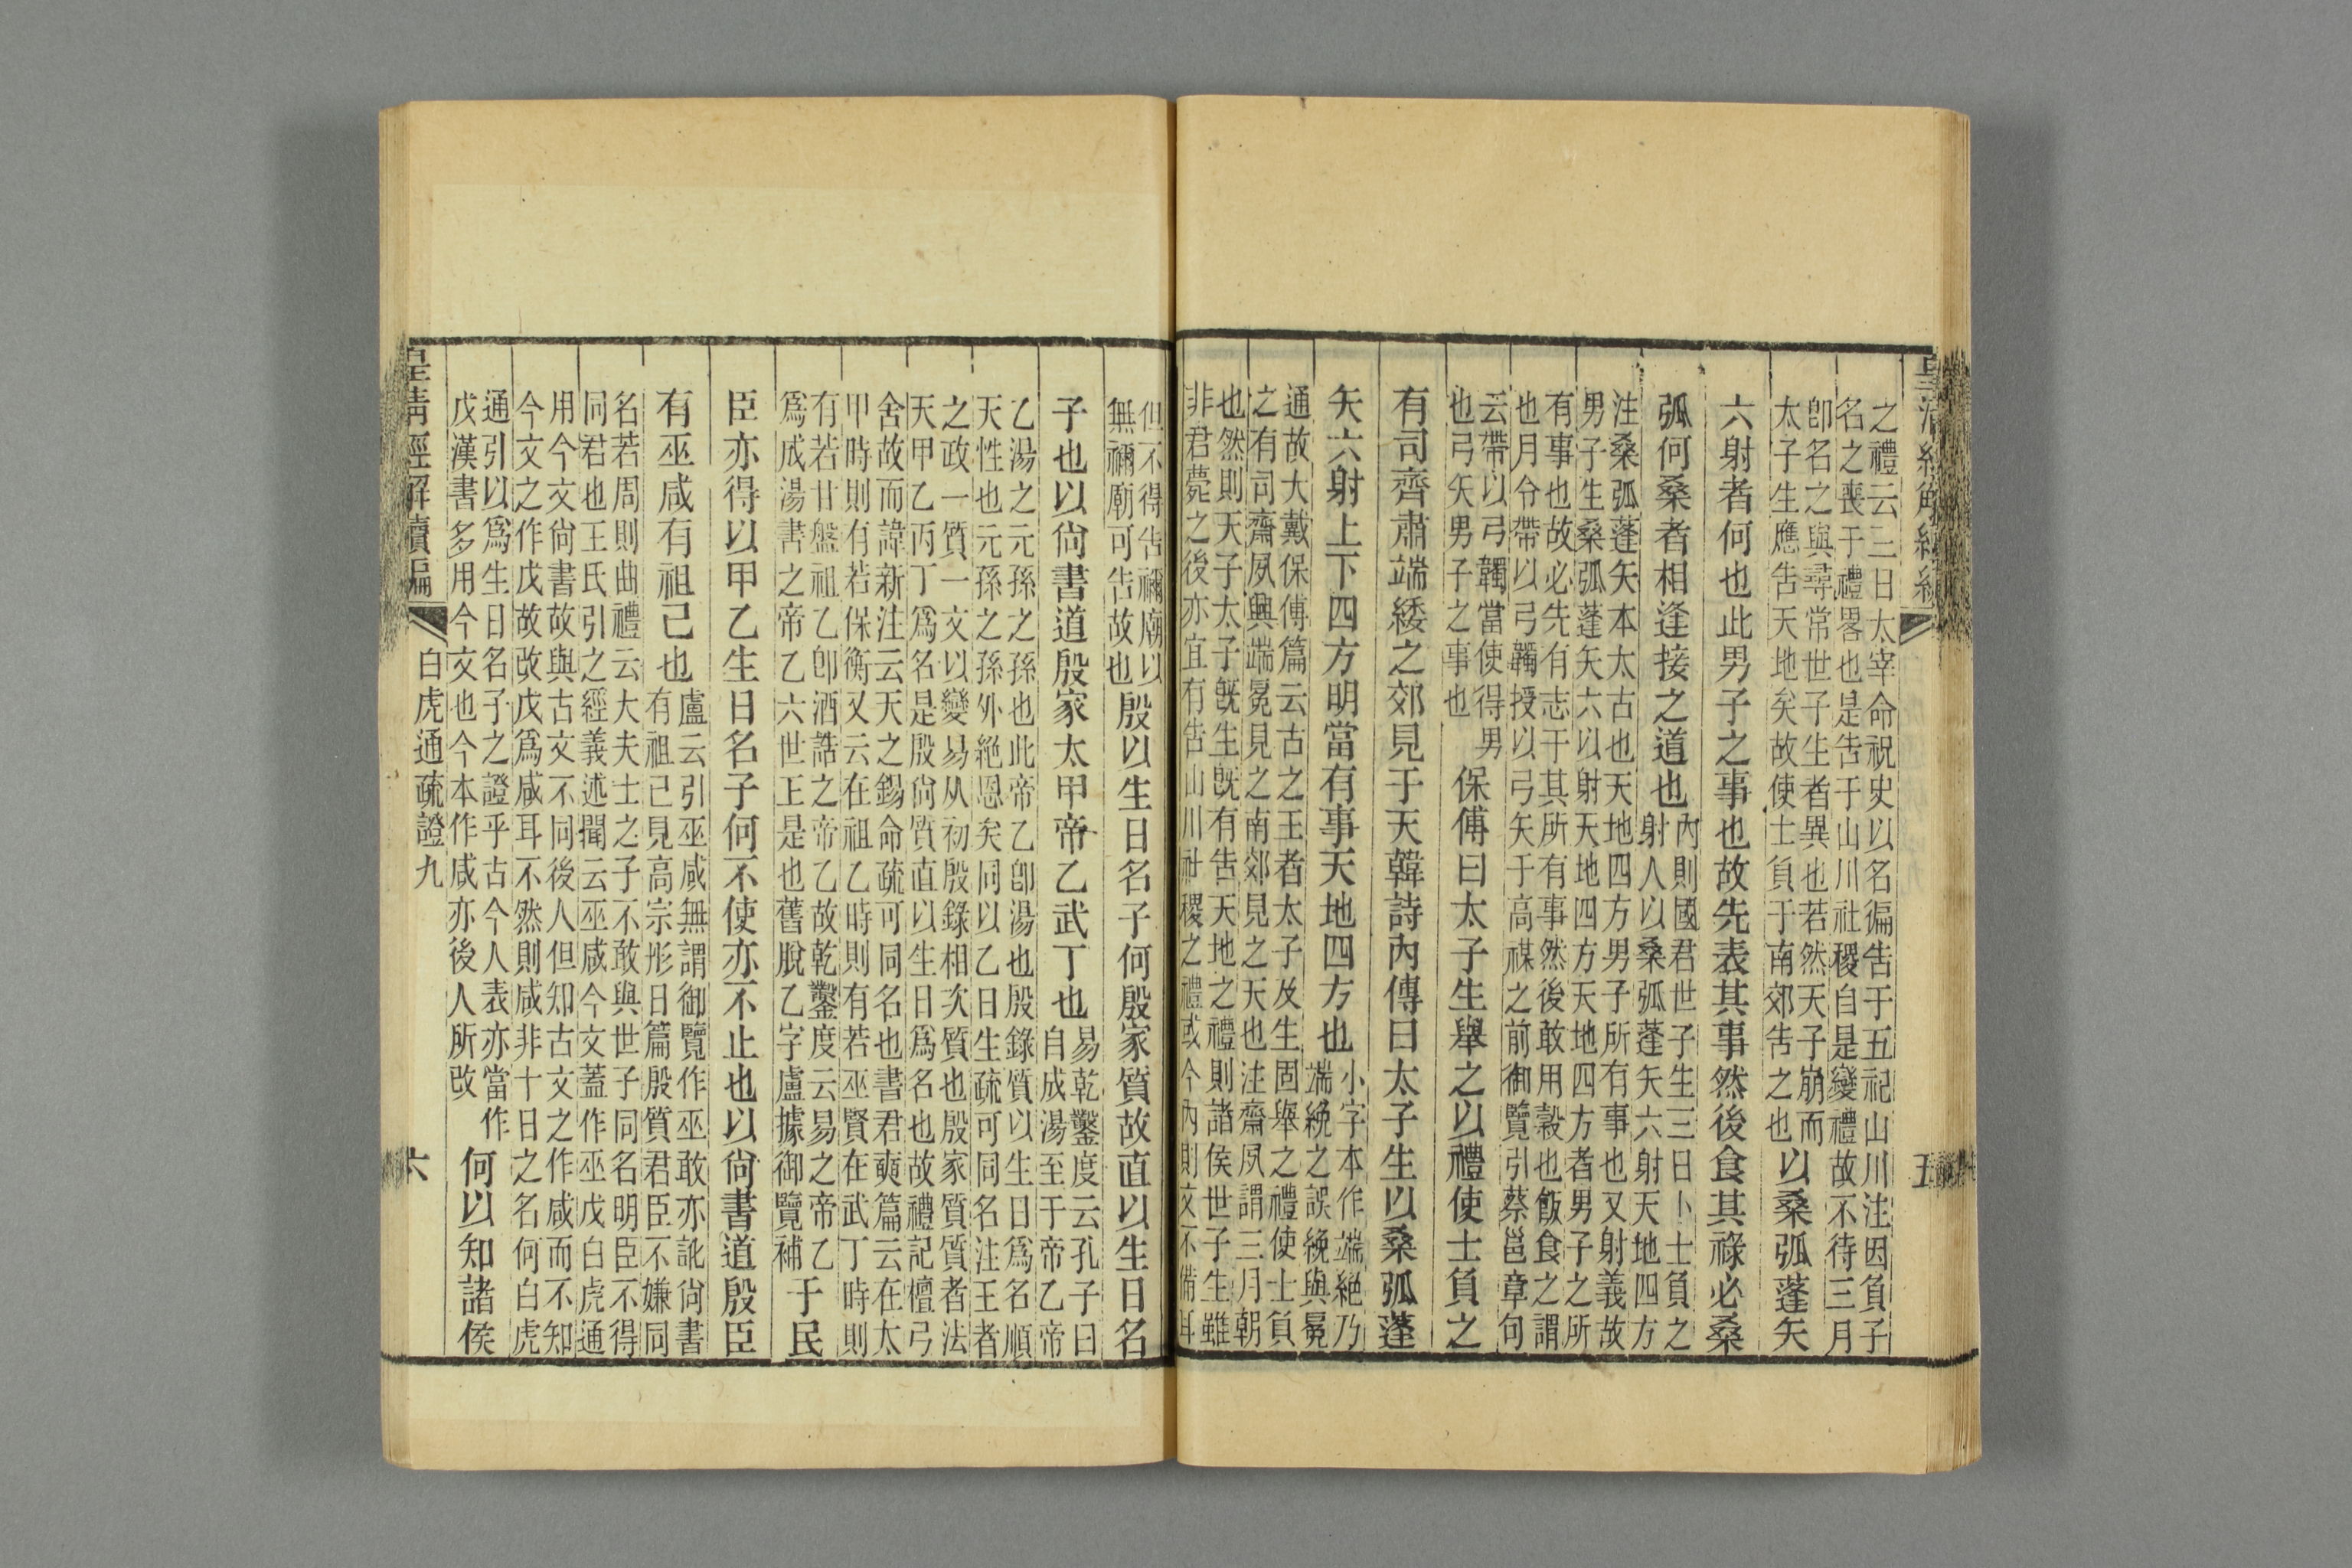 之禮云三日太宰命祝史以名徧告于五祀山川注因負子
名之喪于禮畧也是告于山川社稷自是變禮故不待三月
卽名之與尋常世子生者異也若然天子崩而
太子生應告天地矣故使士負于南郊告之也
以桑弧蓬矢
六射者何也此男子之事也故先表其事然後食其祿必桑
弧何桑者相逢接之道也
內則國君世子生三日卜士負之
射人以桑弧蓬矢六射天地四方
注桑弧蓬矢本太古也天地四方男子所有事也又射義故
男子生桑弧蓬矢六以射天地四方天地四方者男子之所
有事也故必先有志于其所有事然後敢用穀也飯食之謂
也月令帶以弓韣授以弓矢于高禖之前御覽引蔡邕章句
云帶以弓韣當使得男
也弓矢男子之事也
保傅曰太子生舉之以禮使士負之
有司齊肅端緌之郊見于天韓詩內傳曰太子生以桑弧蓬
矢六射上下四方明當有事天地四方也
小字本作端絕乃
端絻之誤絻與冕
通故大戴保傅篇云古之王者太子及生固舉之禮使士負
之有司齋夙興端冕見之南郊見之天也注齋夙謂三月朝
也然則天子太子旣生旣有告天地之禮則諸侯世子生雖
非君薨之後亦宜有告山川社稷之禮或今內則文不備耳
五
但不得告禰廟以
無禰廟可告故也
殷以生日名子何殷家質故直以生日名
子也以尙書道殷家太甲帝乙武丁也
易乾鑿度云孔子曰
自成湯至于帝乙帝
乙湯之元孫之孫也此帝乙卽湯也殷錄質以生日爲名順
天性也元孫之孫外絕恩矣同以乙日生疏可同名注王者
之政一質一文以變易从初殷錄相次質也殷家質質者法
天甲乙丙丁爲名是殷尙質直以生日爲名也故禮記檀弓
舍故而諱新注云天之錫命疏可同名也書君奭篇云在太
甲時則有若保衡又云在祖乙時則有若巫賢在武丁時則
有若甘盤祖乙卽酒誥之帝乙故乾鑿度云易之帝乙
爲成湯書之帝乙六世王是也舊脫乙字盧據御覽補
于民
臣亦得以甲乙生日名子何不使亦不止也以尙書道殷臣
有巫咸有祖己也
盧云引巫咸無謂御覽作巫敢亦訛尙書
有祖己見高宗彤日篇殷質君臣不嫌同
名若周則曲禮云大夫士之子不敢與世子同名明臣不得
同君也王氏引之經義述聞云巫咸今文蓋作巫戊白虎通
用今文尙書故與古文不同後人但知古文之作咸而不知
今文之作戊故改戊爲咸耳不然則咸非十日之名何白虎
通引以爲生日名子之證乎古今人表亦當作
戊漢書多用今文也今本作咸亦後人所改
何以知諸侯
皇清經解續編
白虎通疏證九
六